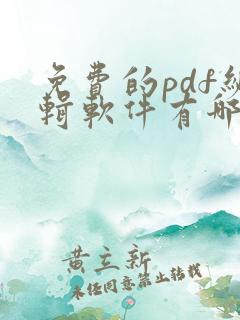 免費的pdf編
輯軟件有哪
黄立新
未经同意禁止转载